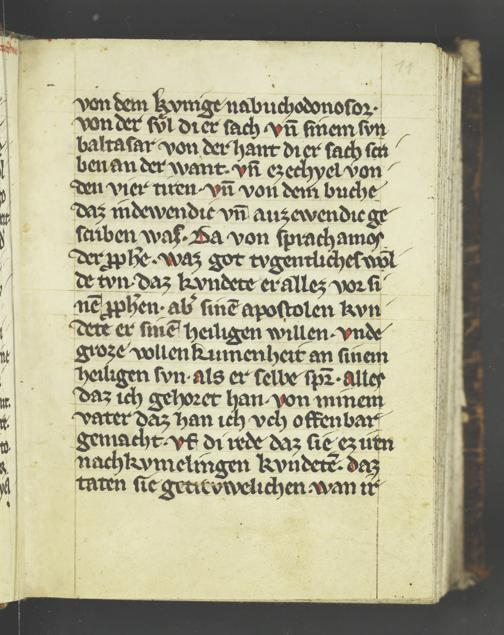 11
von dem kvnige nabuchodonosor·
von der sv̂l di er sach · vn̄ sinem svn
baltasar von der hant di er sach scri
ben an der want · vn̄ ezechyel von
den vier tiren · vn̄ von dem buche
daz indewendic vn̄ auzewendic ge
scriben waſ. Da von sprach amoſ
der ꝓphe · waz got tvgentliches wôl
de tvn · daz kvndete er allez vor si
nē ꝓphen · ab᾽ sinē apostolen kvn
dete er sinē heiligen willen · vnde
groze vollenkumenheit an sinem
heiligen svn · als er selbe spꝛ̄ · alles
daz ich gehoret han · von minem
vater daz han ich vch offenbar
gemacht · vf̄ di rede daz sie ez irn
nachkvmelingen kvndetē · daz
taten sie getrvwelichen · wan ir